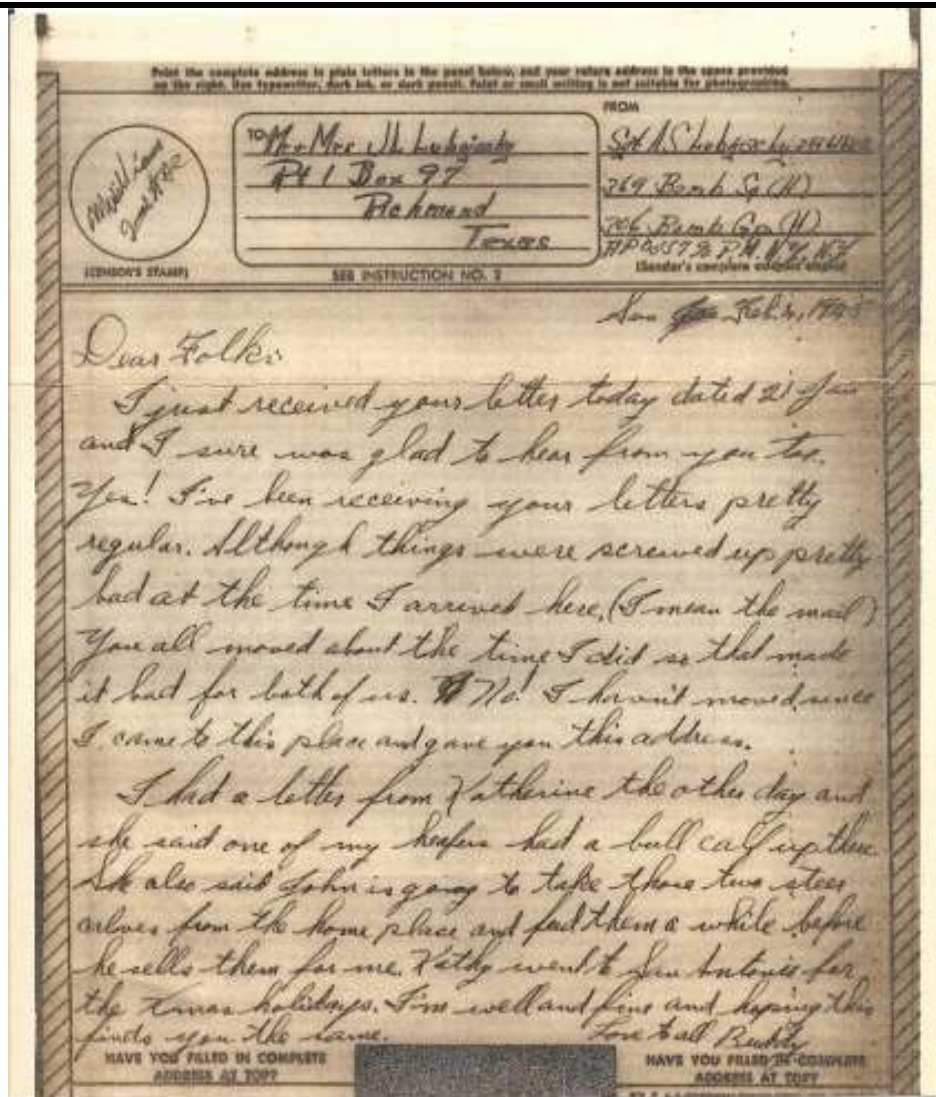 Print the complete address in plain letters in the panel below, and your return address in the space provided
on the right. Use typewriter, dark ink, or dark pencil. Faint or small writing is not suitable for photographing.
TO
Mr. Mrs
Rt 1 Box 97
Richmond
Texas
(CENSOR'S STAMP)
SEE INSTRUCTION NO. 2
FROM
Sgt. A.S.
369 Bomb Sq (H)
306 Bomb Gp (H)
APO 557 % P.M. N.Y. N.Y.
(Sender's complete address above)
Sun Feb. 4, 1945
Dear Folks:
I just received your letter today dated 21 Jan
and I sure was glad to hear from you too.
Yes! I've been receiving your letters pretty
regular. Although things were screwed up pretty
bad at the time I arrived here. (I mean the mail)
You all moved about the time I did so that made
it bad for both of us. No! I haven't moved since
I came to this place and gave you this address.
I had a letter from Katherine the other day and
she said one of my heafers had a bull calf up there.
She also said John is going to take those two steer
calves from the home place and feed them a while before
he sells them for me. Kathy went to San Antonio for
the Xmas holidays. I'm well and fine and hoping this
finds you the same.
Love to all Buddy
HAVE YOU FILLED IN COMPLETE
ADDRESS AT TOP?
HAVE YOU FILLED IN COMPLETE
ADDRESS AT TOP?